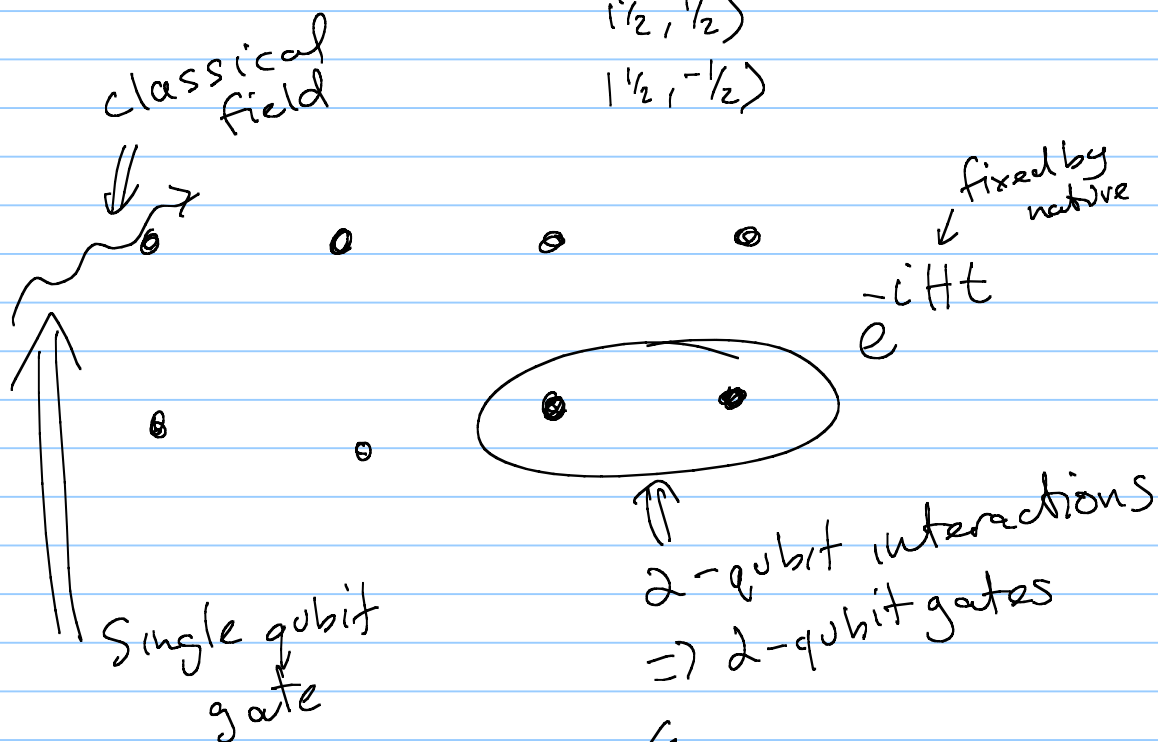 |½, ½⟩
|½, -½⟩
classical
field
fixed by
nature
e^{-iHt}
2-qubit interactions
=> 2-qubit gates
Single qubit
gate